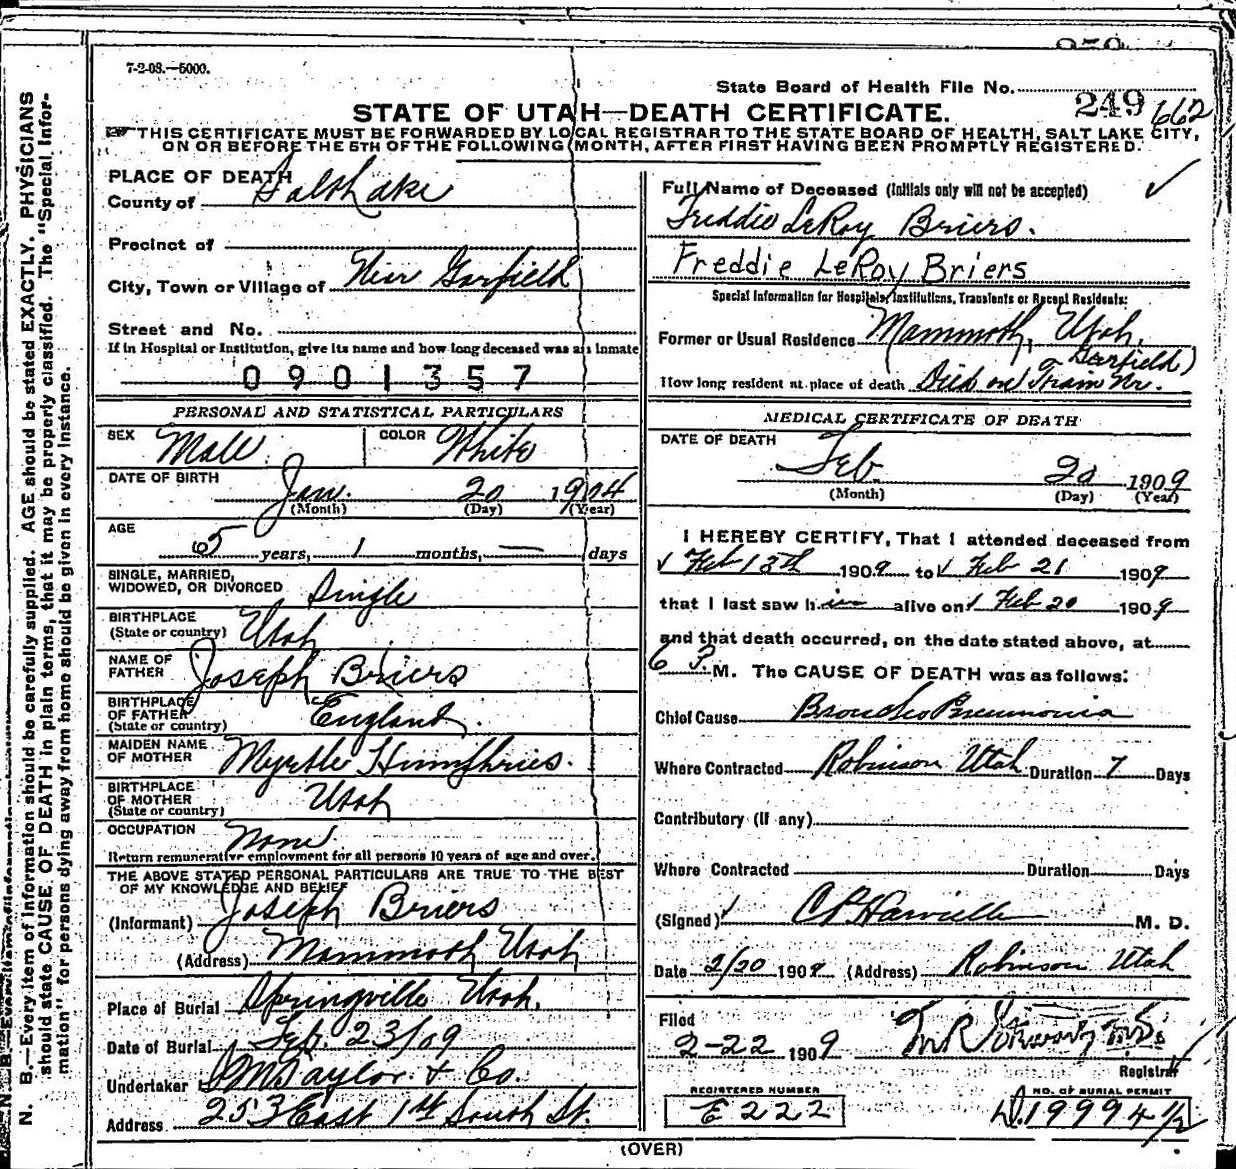 7-2-08.—5000.
State Board of Health File No. 249 662
STATE OF UTAH—DEATH CERTIFICATE.
THIS CERTIFICATE MUST BE FORWARDED BY LOCAL REGISTRAR TO THE STATE BOARD OF HEALTH, SALT LAKE CITY,
ON OR BEFORE THE 5TH OF THE FOLLOWING MONTH, AFTER FIRST HAVING BEEN PROMPTLY REGISTERED.
N. B.—Every item of information should be carefully supplied. AGE should be stated EXACTLY. PHYSICIANS
should state CAUSE OF DEATH in plain terms, that it may be properly classified. The "Special Infor-
mation" for persons dying away from home should be given in every instance.
PLACE OF DEATH
County of Salt Lake
Precinct of
City, Town or Village of Near Garfield
Street and No.
If in Hospital or Institution, give its name and how long deceased was an inmate
0901357
PERSONAL AND STATISTICAL PARTICULARS
SEX Male COLOR White
DATE OF BIRTH Jan. 20 1904
(Month) (Day) (Year)
AGE
5 years, 1 months, — days
SINGLE, MARRIED,
WIDOWED, OR DIVORCED Single
BIRTHPLACE
(State or country) Utah
NAME OF
FATHER Joseph Briers
BIRTHPLACE
OF FATHER England.
(State or country)
MAIDEN NAME
OF MOTHER Myrtle Humphries.
BIRTHPLACE
OF MOTHER Utah
(State or country)
OCCUPATION None
Return remunerative employment for all persons 10 years of age and over.
THE ABOVE STATED PERSONAL PARTICULARS ARE TRUE TO THE BEST
OF MY KNOWLEDGE AND BELIEF
(Informant) Joseph Briers
(Address) Mammoth Utah
Place of Burial Springville Utah.
Date of Burial Feb. 23/09
Undertaker S M Taylor & Co.
Address 253 East 1st South St.
Full Name of Deceased (Initials only will not be accepted)
Freddie LeRoy Briers.
Freddie LeRoy Briers
Special Information for Hospitals, Institutions, Transients or Recent Residents:
Former or Usual Residence Mammoth, Utah.
How long resident at place of death Died on Train Nr. Garfield)
MEDICAL CERTIFICATE OF DEATH
DATE OF DEATH
Feb. 20 1909
(Month) (Day) (Year)
I HEREBY CERTIFY, That I attended deceased from
Feb 13th 1909 to Feb 21 1909
that I last saw him alive on Feb 20 1909
and that death occurred, on the date stated above, at
6 P.M. The CAUSE OF DEATH was as follows:
Chief Cause Broncho Pneumonia
Where Contracted Robinson Utah Duration 7 Days
Contributory (If any)
Where Contracted Duration Days
(Signed) M. D.
Date 2/20 1909 (Address) Robinson Utah
Filed
2-22 1909
Registrar
REGISTERED NUMBER
E222
NO. OF BURIAL PERMIT
D.19994 1/2
(OVER)